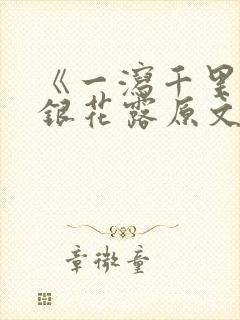 《一泻千里
银花露原文
章微童